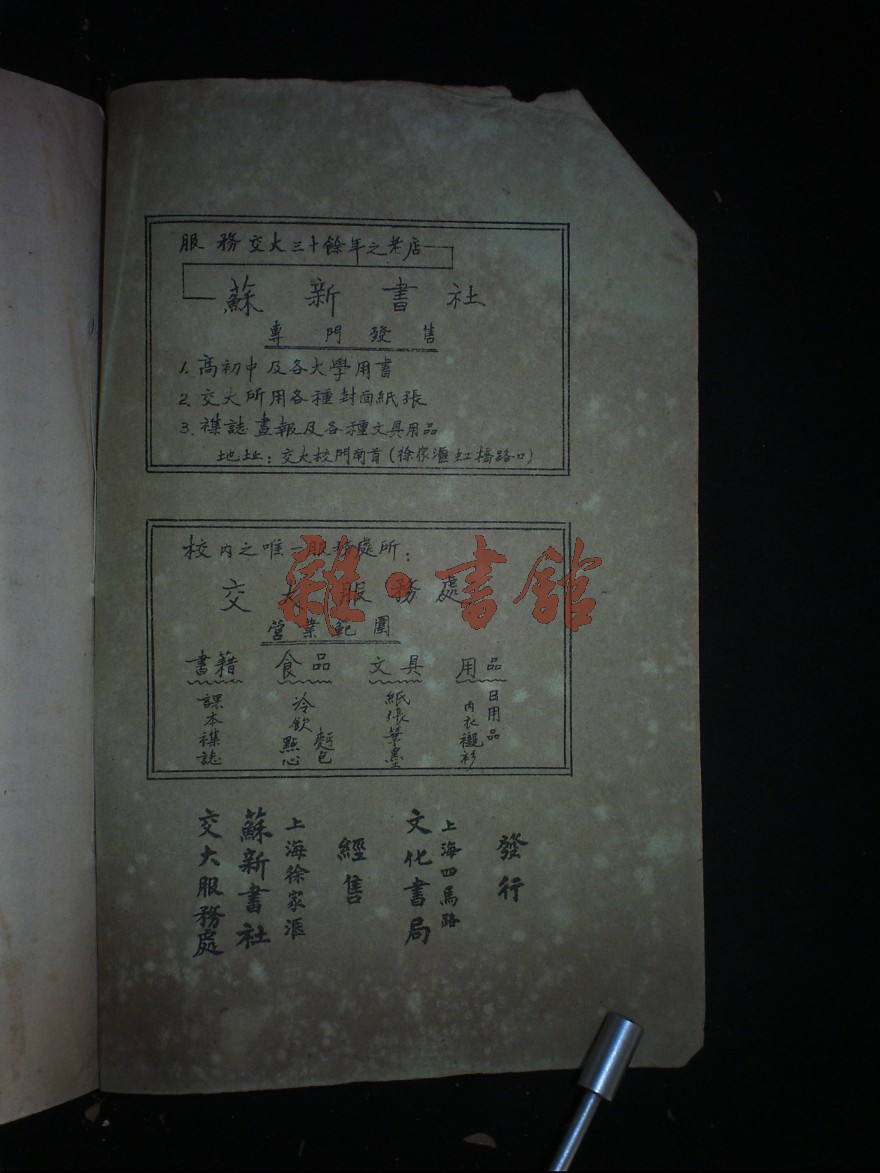 服務交大三十餘年之老店
蘇新書社
專門發售
1.高初中及各大學用書
2.交大所用各種封面紙張
3.襍誌畫報及各種文具用品
地址：交大校門南首(徐家滙虹橋路口)
校内之唯一服務處所：
交大服務處
營業範圍
書籍 食品 文具 用品
課本襍誌
冷飲點心
麵包
紙張筆墨
日用品
内衣襯衫
發行
上海四馬路
文化書局
經售
上海徐家滙
蘇新書社
交大服務處
雜·書館